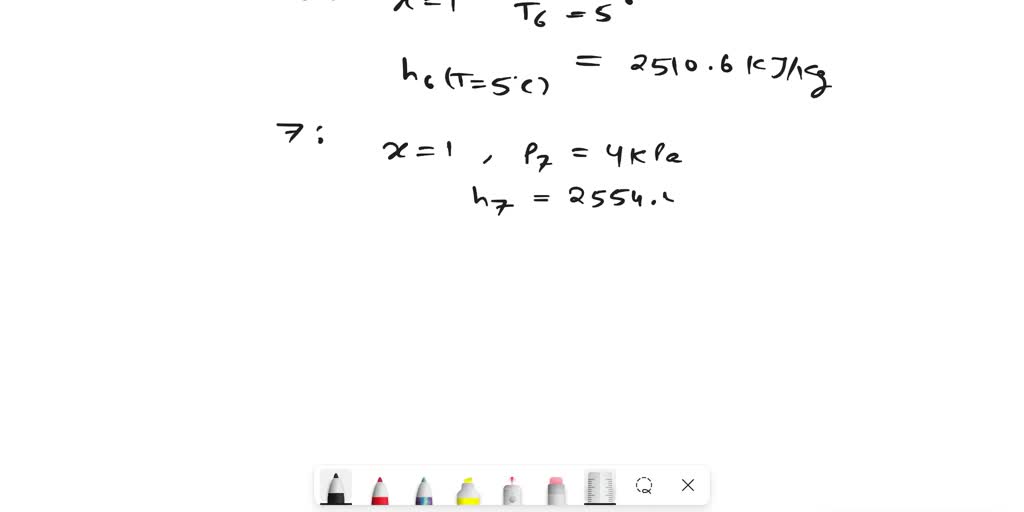 x=1 T6 = 5°
h6 (T=5°C) = 2510.6 kJ/kg
7:
x=1 , P7 = 4kPa
h7 = 2554.